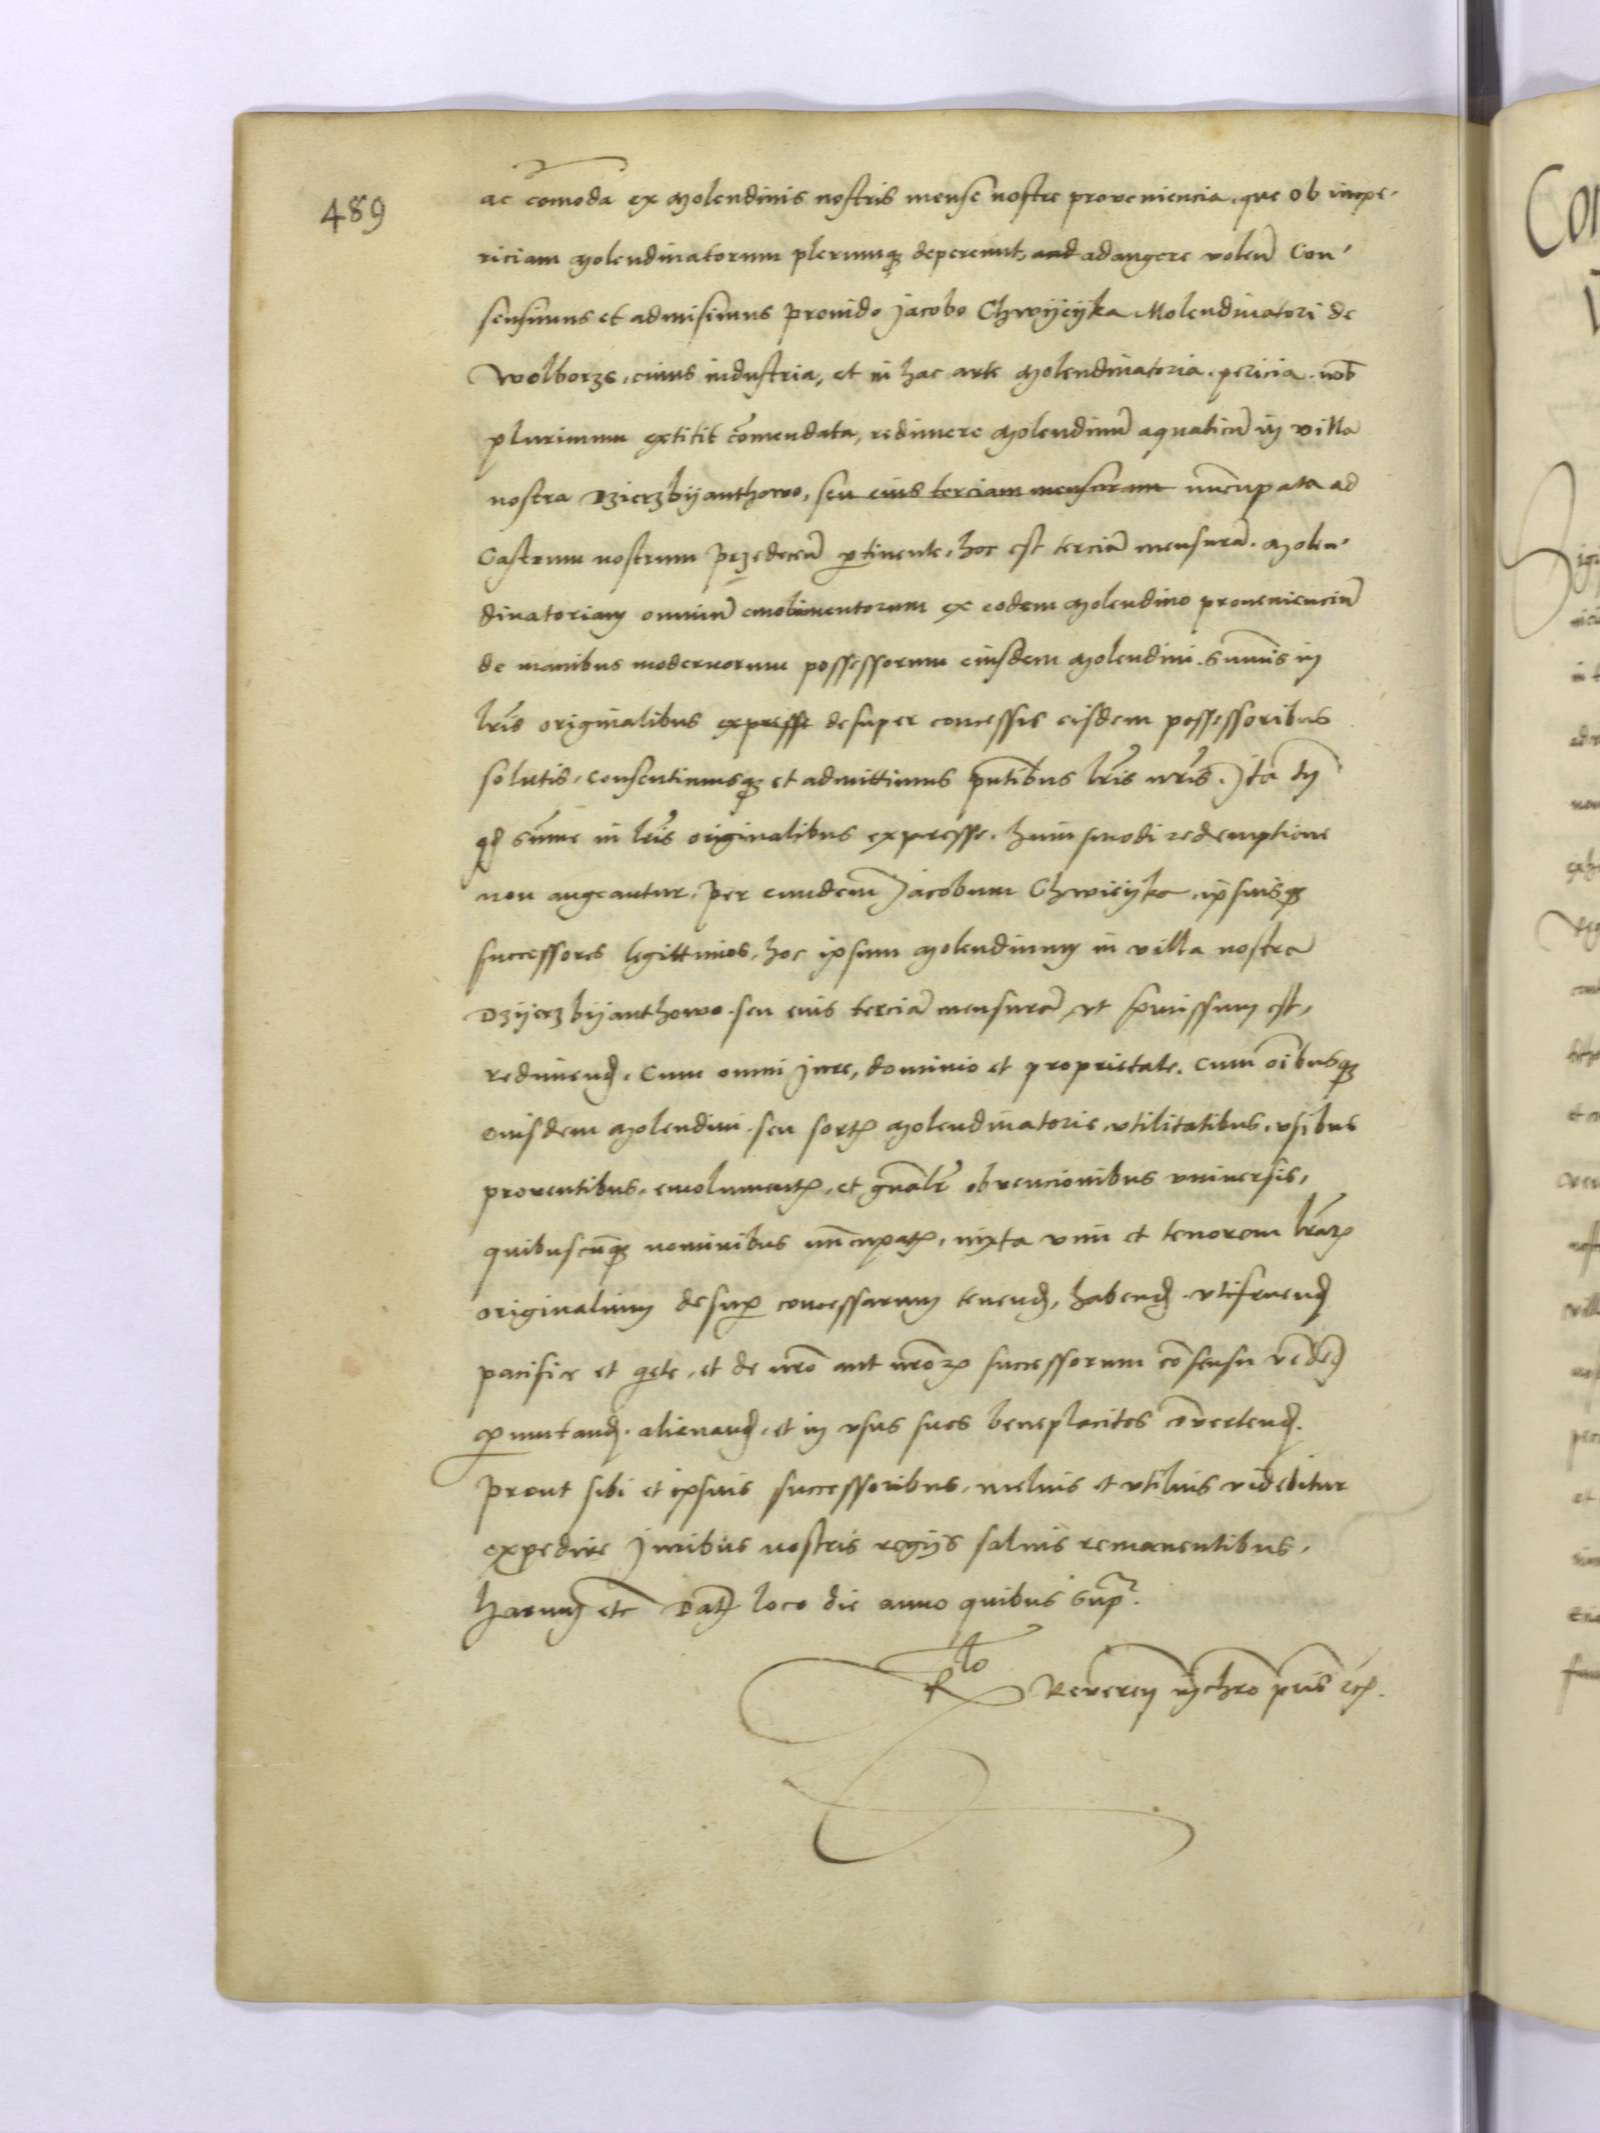 489
ac comoda ex Molendinis nostris mense nostre proveniencia, que ob inexpe-
riciam Molendinatorum plerumq; depereunt, and adaugere volen̄ Con-
sensimus et admisimus Provido Jacobo Chwycyka Molendinatori de
Wolborze, cuius industria, et in hac arte Molendinatoria pericia nob̄
plurimum extitit cōmendata, redimere Molendinū aquaticū in villa
nostra Dzierzbyanthowo, seu eius terciam mensuram nūcupata ad
Castrum nostrum Przedecen̄ ptinente, hoc est terciā mensurā Molen-
dinatoriam omniū emolimentorum ex eodem Molendino provenienciū
de manibus modernorum possessorum eiusdem Molendini sum̄is in
lr̄is originalibus expresse desuper concessis eisdem possessoribus
solutis, consentimusq; et admittimus pn̄tibus lr̄is nr̄is. Ita tn̄
qd sum̄e in lr̄is originalibus expresse huiusmodi redemptione
non augeantur, per eundem Jacobum Chwicyka, ipsiusq;
successores legittimos, hoc ipsum Molendinum in villa nostra
Dzyerzbyanthowo seu eius terciā mensurā, ut p̄missum est,
redimend, Cum omni iure, dominio et proprietate, cum oībusq;
eiusdem Molendini seu sort Molendinatorie utilitatibus, usibus
proventibus, emolument, et gn̄alr̄ obvencionibus universis,
quibuscūq; nominibus nūcupat, iuxta vim et tenorem lr̄ar
originalium desup concessarum tenend, habend utifruend
pacifice et q̄ete, et de nr̄o aut nr̄or successorum cōsensu vēdēd
pmutand, alienand, et in usus suos beneplacitos cōvertend.
Prout sibi et ipsius successoribus, melius et utilius videbitur
expedire Juribus nostris regiis salvis remanentibus,
Harum etc Dat loco die anno quibus sup̄.
Rlo Reveren